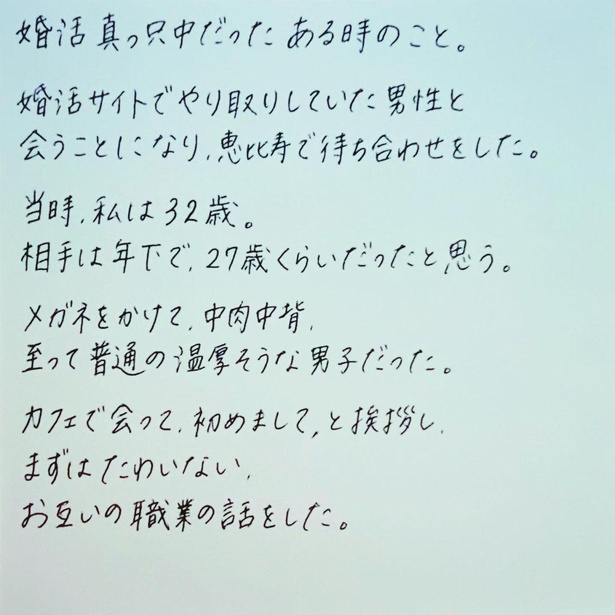 婚活真っ只中だったある時のこと。
婚活サイトでやり取りしていた男性と
会うことになり、恵比寿で待ち合わせをした。
当時、私は32歳。
相手は年下で、27歳くらいだったと思う。
メガネをかけて、中肉中背、
至って普通の温厚そうな男子だった。
カフェで会って、初めまして、と挨拶し、
まずはたわいない、
お互いの職業の話をした。